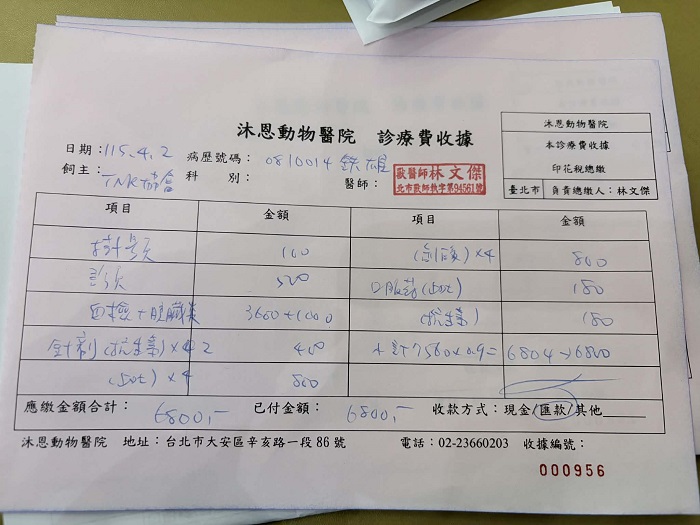 沐恩動物醫院 診療費收據
沐恩動物醫院
本診療費收據
印花稅總繳
臺北市 負責總繳人：林文傑
日期：115.4.2 病歷號碼：0810014 鐵雄
飼主：TNR協會 科 別： 醫師： 獸醫師 林文傑
北市獸師執字第94561號
項目 金額 項目 金額
掛號費 100 ×4 800
診狀 500 口服藥 180
血檢+胰臟炎 3600+1000 (抗生素) 180
針劑(抗生素)×4 2 400 共計7560×0.9= 6804→6800
×4 800
應繳金額合計： 6800,- 已付金額： 6800,- 收款方式：現金/匯款/其他
沐恩動物醫院 地址：台北市大安區辛亥路一段86號 電話：02-23660203 收據編號：
000956